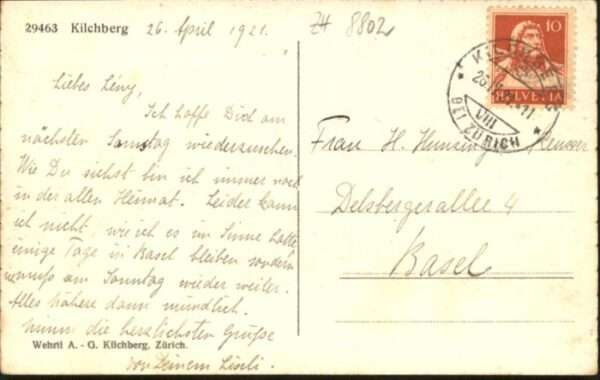 29463 Kilchberg 26. April 1921.
ZH 8802
Ich hoffe Dich am
nächsten Samstag wiederzusehen.
Wie Du siehst bin ich immer noch
in der alten Heimat. Leider kann
ich nicht, wie ich es im Sinne hatte
einige Tage in Basel bleiben sondern
muss am Sonntag wieder weiter.
Alles nähere dann mündlich.
Nimm die herzlichsten Grüsse
von Deinem Liseli.
Wehrli A.-G. Kilchberg, Zürich.
10
HELVETIA
BEI ZÜRICH
VIII
Frau H. Hunziger
Delsbergerallee 4
Basel